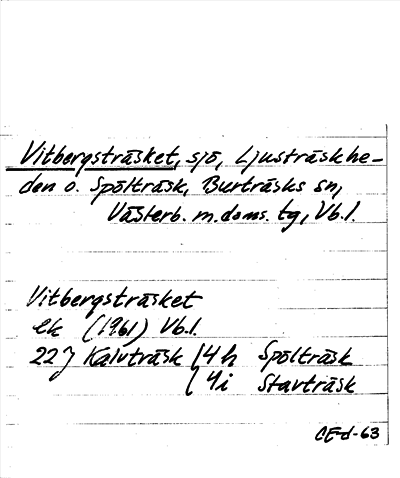 Vitbergsträsket, sjö, Ljusträskhe-
den o. Spölträsk, Burträsks sn,
Västerb. m. doms. tg, Vb. l.
Vitbergsträsket
ek (1961) Vb. l.
22 J Kalvträsk { 4 h Spölträsk
4 i Stavträsk
CE-d-63